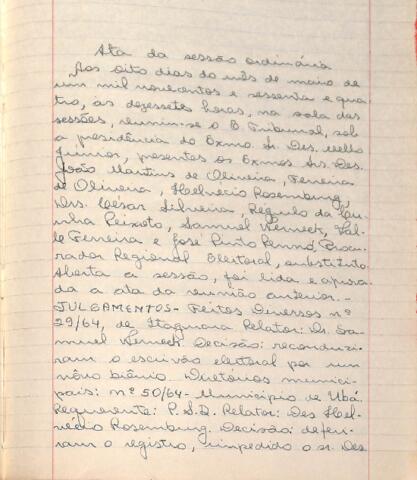 Ata da sessão ordinária
Aos oito dias do mês de maio de
um mil novecentos e sessenta e qua-
tro, às dezessete horas, na sala das
sessões, reuniu-se o E. Tribunal, sob
a presidência do Exmo. Sr. Des. Mello
Junior, presentes os Exmos. Srs. Des.
João Martins de Oliveira, Ferreira
de Oliveira, Helvécio Rosemburg,
Drs. César Silveira, Régulo da Cu-
nha Peixoto, Samuel Werneck, Val-
le Ferreira e José Pinto Renno, Procu-
rador Regional Eleitoral, substituto.
Aberta a sessão, foi lida e aprova-
da a ata da reunião anterior. -
JULGAMENTOS - Feitos Diversos nº
29/64, de Itaguara Relator: Dr. Sa-
muel Werneck Decisão: reconduzi-
ram o escrivão eleitoral por um
nôvo biênio. Diretórios munici-
pais: nº 50/64 - Município de Ubá.
Requerente: P.S.D. Relator: Des Hel-
vécio Rosemburg. Decisão: deferi-
ram o registro, impedido o sr. Des